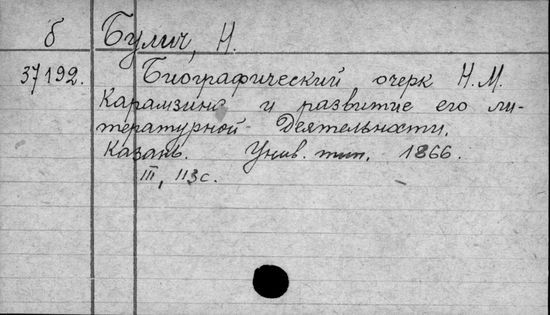 б Булич, Н.
37192. Биографический очерк Н.М.
Карамзина и развитие его ли-
тературной Деятельности.
Казань. Унив. тип. 1866.
III, 113с.